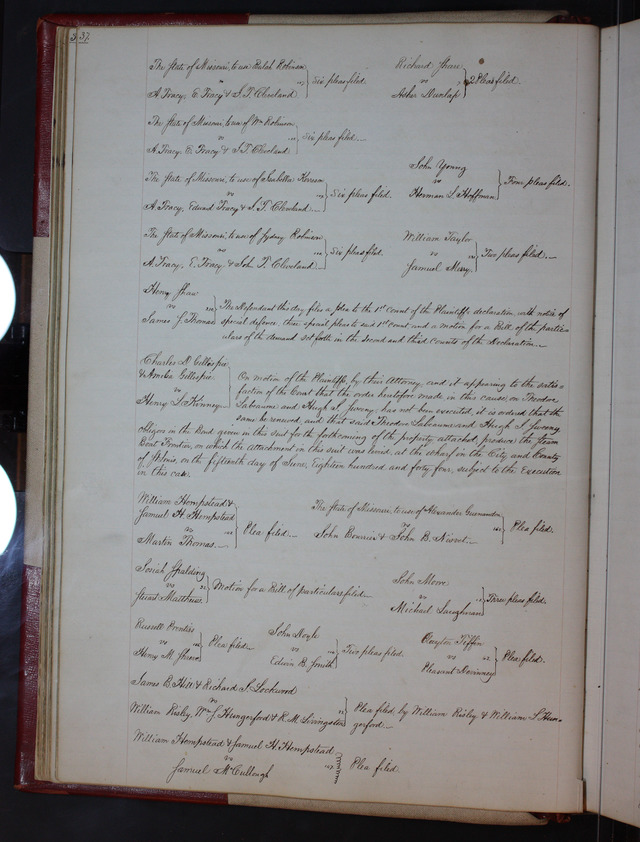 337
The State of Missouri, to use Ralph Robinson
vs
A. Tracy, E. Tracy & S. T. Cleveland
Six pleas filed.
Richard Shore
vs
Asher Dunlap
2 Pleas filed.
The State of Missouri, to use of Wm Robinson
vs
A. Tracy, E. Tracy & S. T. Cleveland
Six pleas filed.
The State of Missouri, to use of
vs
A. Tracy, Edward Tracy & S. T. Cleveland
Six pleas filed.
John Young
vs
Herman L. Hoffman
Four pleas filed.
The State of Missouri, to use of Sydney Robinson
vs
A. Tracy, E. Tracy & John T. Cleveland
Six pleas filed.
William Taylor
vs
Samuel
Two pleas filed.
Henry Shaw
vs
James S. Thomas
The Defendant this day files a plea to the 1st Count of the Plaintiffs declaration, with notice of
special defence, three special pleas to said 1st count and a motion for a Bill of the partic-
ulars of the demand set forth in the second and third counts of the Declaration.
Charles D. Gillespie
& Amelia Gillespie
vs
Henry S. Kenney
On motion of the Plaintiffs, by their Attorney, and it appearing to the satis-
faction of the Court that the order heretofore made in this cause, on Theodore
Labeaume and Hugh S. has not been executed, it is ordered that the
same be renewed, and that said Theodore Labeaume and Hugh S.
obligors in the Bond given in this suit for the forthcoming of the property attached, produce the Steam
Boat Frontier, on which the attachment in this suit was levied, at the wharf in the City and County
of St Louis, on the fifteenth day of June, Eighteen hundred and forty four, subject to the Execution
in this case.
William Hempstead &
Samuel H. Hempstead
vs
Martin Thomas
Plea filed.
The State of Missouri, to use of Alexander
vs
John & John B.
Plea filed.
Josiah Spalding
vs
Stuart Matthews
Motion for a Bill of particulars filed
John Moore
vs
Michael
Three pleas filed.
vs
Henry M. Shreve
Plea filed.
John Doyle
vs
Edwin B. Smith
Two pleas filed.
Clayton Tiffin
vs
Pleasant
Plea filed.
James B. Hill & Richard S. Lockwood
vs
William Risley, Wm S. Hungerford & R. M. Livingston
Plea filed, by William Risley & William S. Hun-
gerford.
William Hempstead & Samuel H. Hempstead
vs
Samuel McCullough
Plea filed.